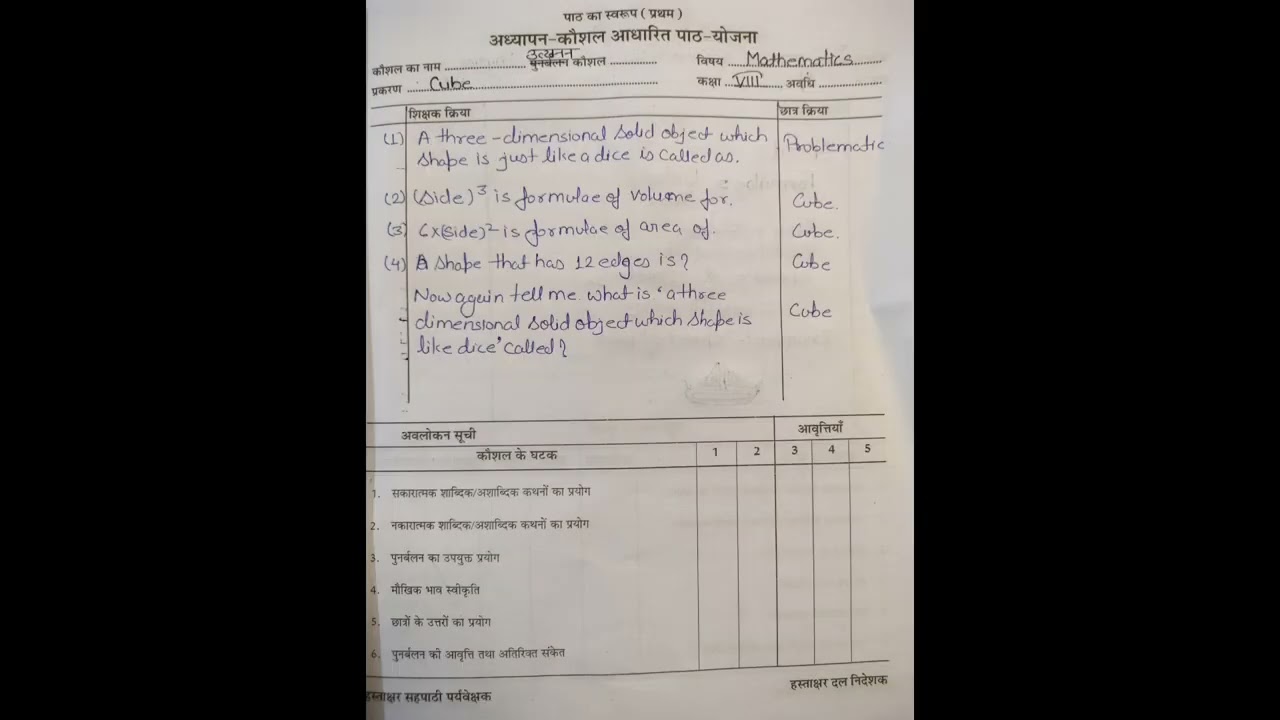 पाठ का स्वरूप ( प्रथम )
अध्यापन-कौशल आधारित पाठ-योजना
उत्खनन
कौशल का नाम .................... पुनर्बलन कौशल .............. विषय .... Mathematics.......
प्रकरण ...... Cube.................................................. कक्षा ... VIII ...... अवधि ..................
शिक्षक क्रिया छात्र क्रिया
(1) A three-dimensional solid object which Problematic
shape is just like a dice is called as.
(2) (Side)³ is formulae of volume for. Cube.
(3) 6x(side)² is formulae of area of. Cube.
(4) A shape that has 12 edges is? Cube
Now again tell me what is 'a three
dimensional solid object which shape is Cube
like dice' called?
अवलोकन सूची आवृत्तियाँ
कौशल के घटक 1 2 3 4 5
1. सकारात्मक शाब्दिक/अशाब्दिक कथनों का प्रयोग
2. नकारात्मक शाब्दिक/अशाब्दिक कथनों का प्रयोग
3. पुनर्बलन का उपयुक्त प्रयोग
4. मौखिक भाव स्वीकृति
5. छात्रों के उत्तरों का प्रयोग
6. पुनर्बलन की आवृत्ति तथा अतिरिक्त संकेत
हस्ताक्षर सहपाठी पर्यवेक्षक हस्ताक्षर दल निदेशक